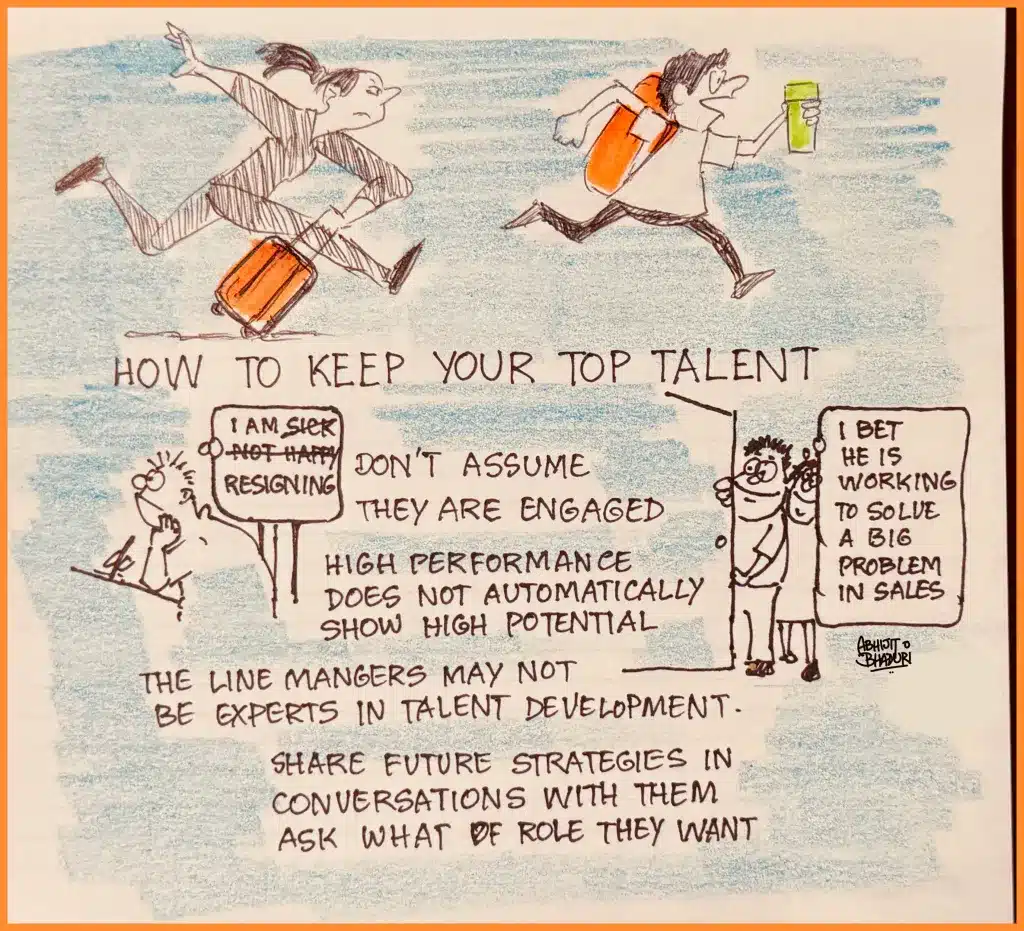 HOW TO KEEP YOUR TOP TALENT
I AM SICK
NOT HAPPY
RESIGNING
DON'T ASSUME
THEY ARE ENGAGED
I BET
HE IS
WORKING
TO SOLVE
A BIG
PROBLEM
IN SALES
HIGH PERFORMANCE
DOES NOT AUTOMATICALLY
SHOW HIGH POTENTIAL
ABHIJIT
BHADURI
THE LINE MANGERS MAY NOT
BE EXPERTS IN TALENT DEVELOPMENT.
SHARE FUTURE STRATEGIES IN
CONVERSATIONS WITH THEM
ASK WHAT OF ROLE THEY WANT